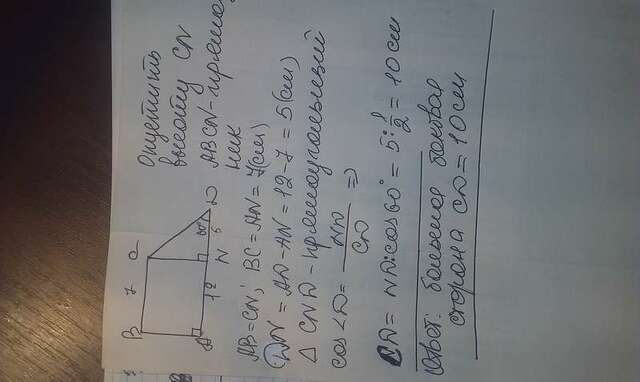 B 7 C
A 12 N 5 D
60°
Опустить
высоту CN
ABCN - прямоуголь
ник
AB = CN; BC = AN = 7(см)
DN = AD - AN = 12 - 7 = 5(см)
△ CND - прямоугольный
cos ∠D = ND/CD =>
CD = ND : cos 60° = 5 : 1/2 = 10 см
Ответ: большая боковая
сторона CD = 10 см